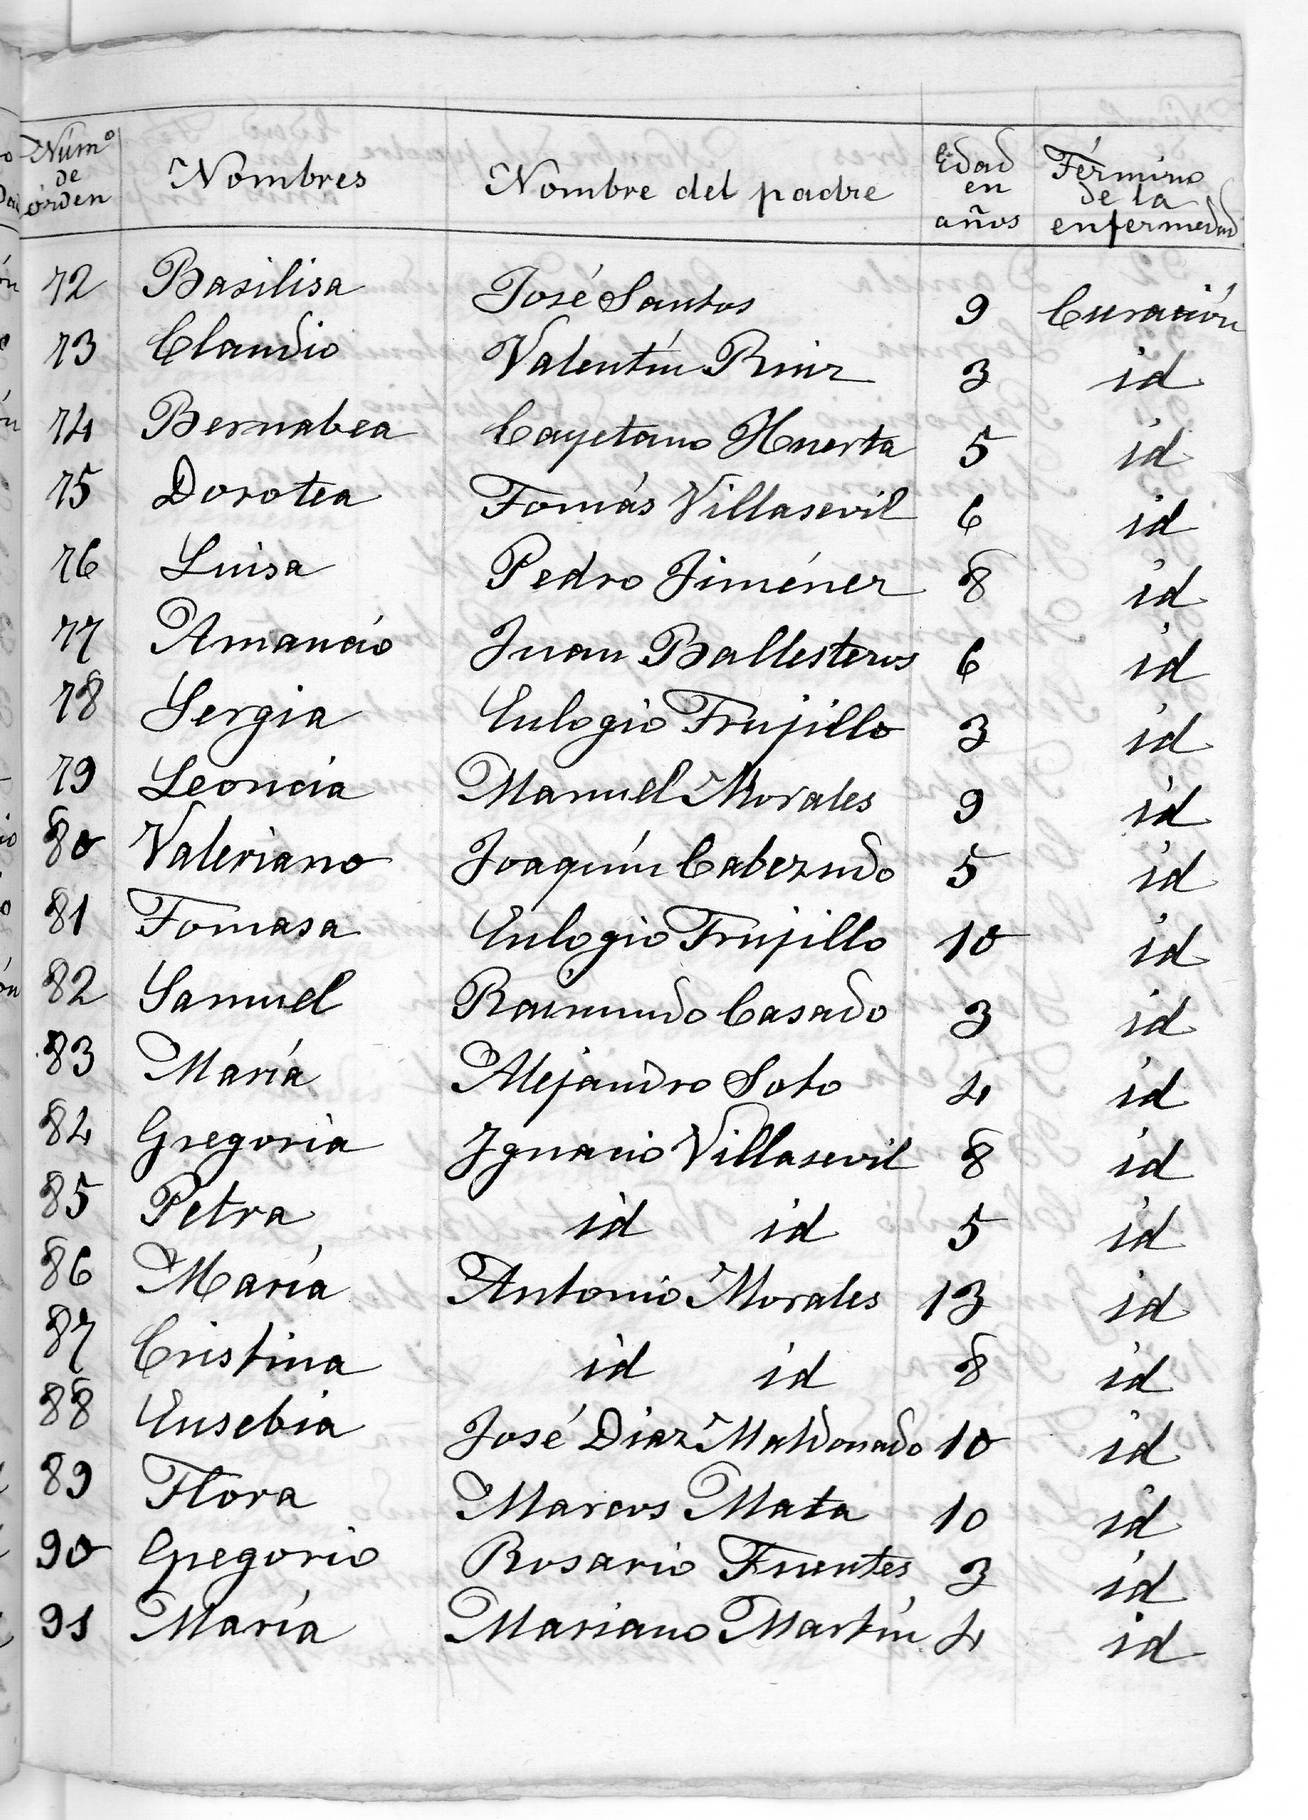 Núm.º de órden Nombres Nombre del padre Edad en años Término de la enfermedad
72 Basilisa José Santos 9 Curación
73 Claudio Valentín Ruiz 3 id
74 Bernabea Cayetano Huerta 5 id
75 Dorotea Tomás Villasevil 6 id
76 Luisa Pedro Jiménez 8 id
77 Amancio Juan Ballesteros 6 id
78 Sergia Eulogio Trujillo 3 id
79 Leoncia Manuel Morales 9 id
80 Valeriano Joaquín Cabezudo 5 id
81 Tomasa Eulogio Trujillo 10 id
82 Samuel Raimundo Casado 3 id
83 María Alejandro Soto 4 id
84 Gregoria Ignacio Villasevil 8 id
85 Petra id id 5 id
86 María Antonio Morales 13 id
87 Cristina id id 8 id
88 Eusebia José Diaz Maldonado 10 id
89 Flora Marcos Mata 10 id
90 Gregorio Rosario Fuentes 3 id
91 María Mariano Martín 4 id